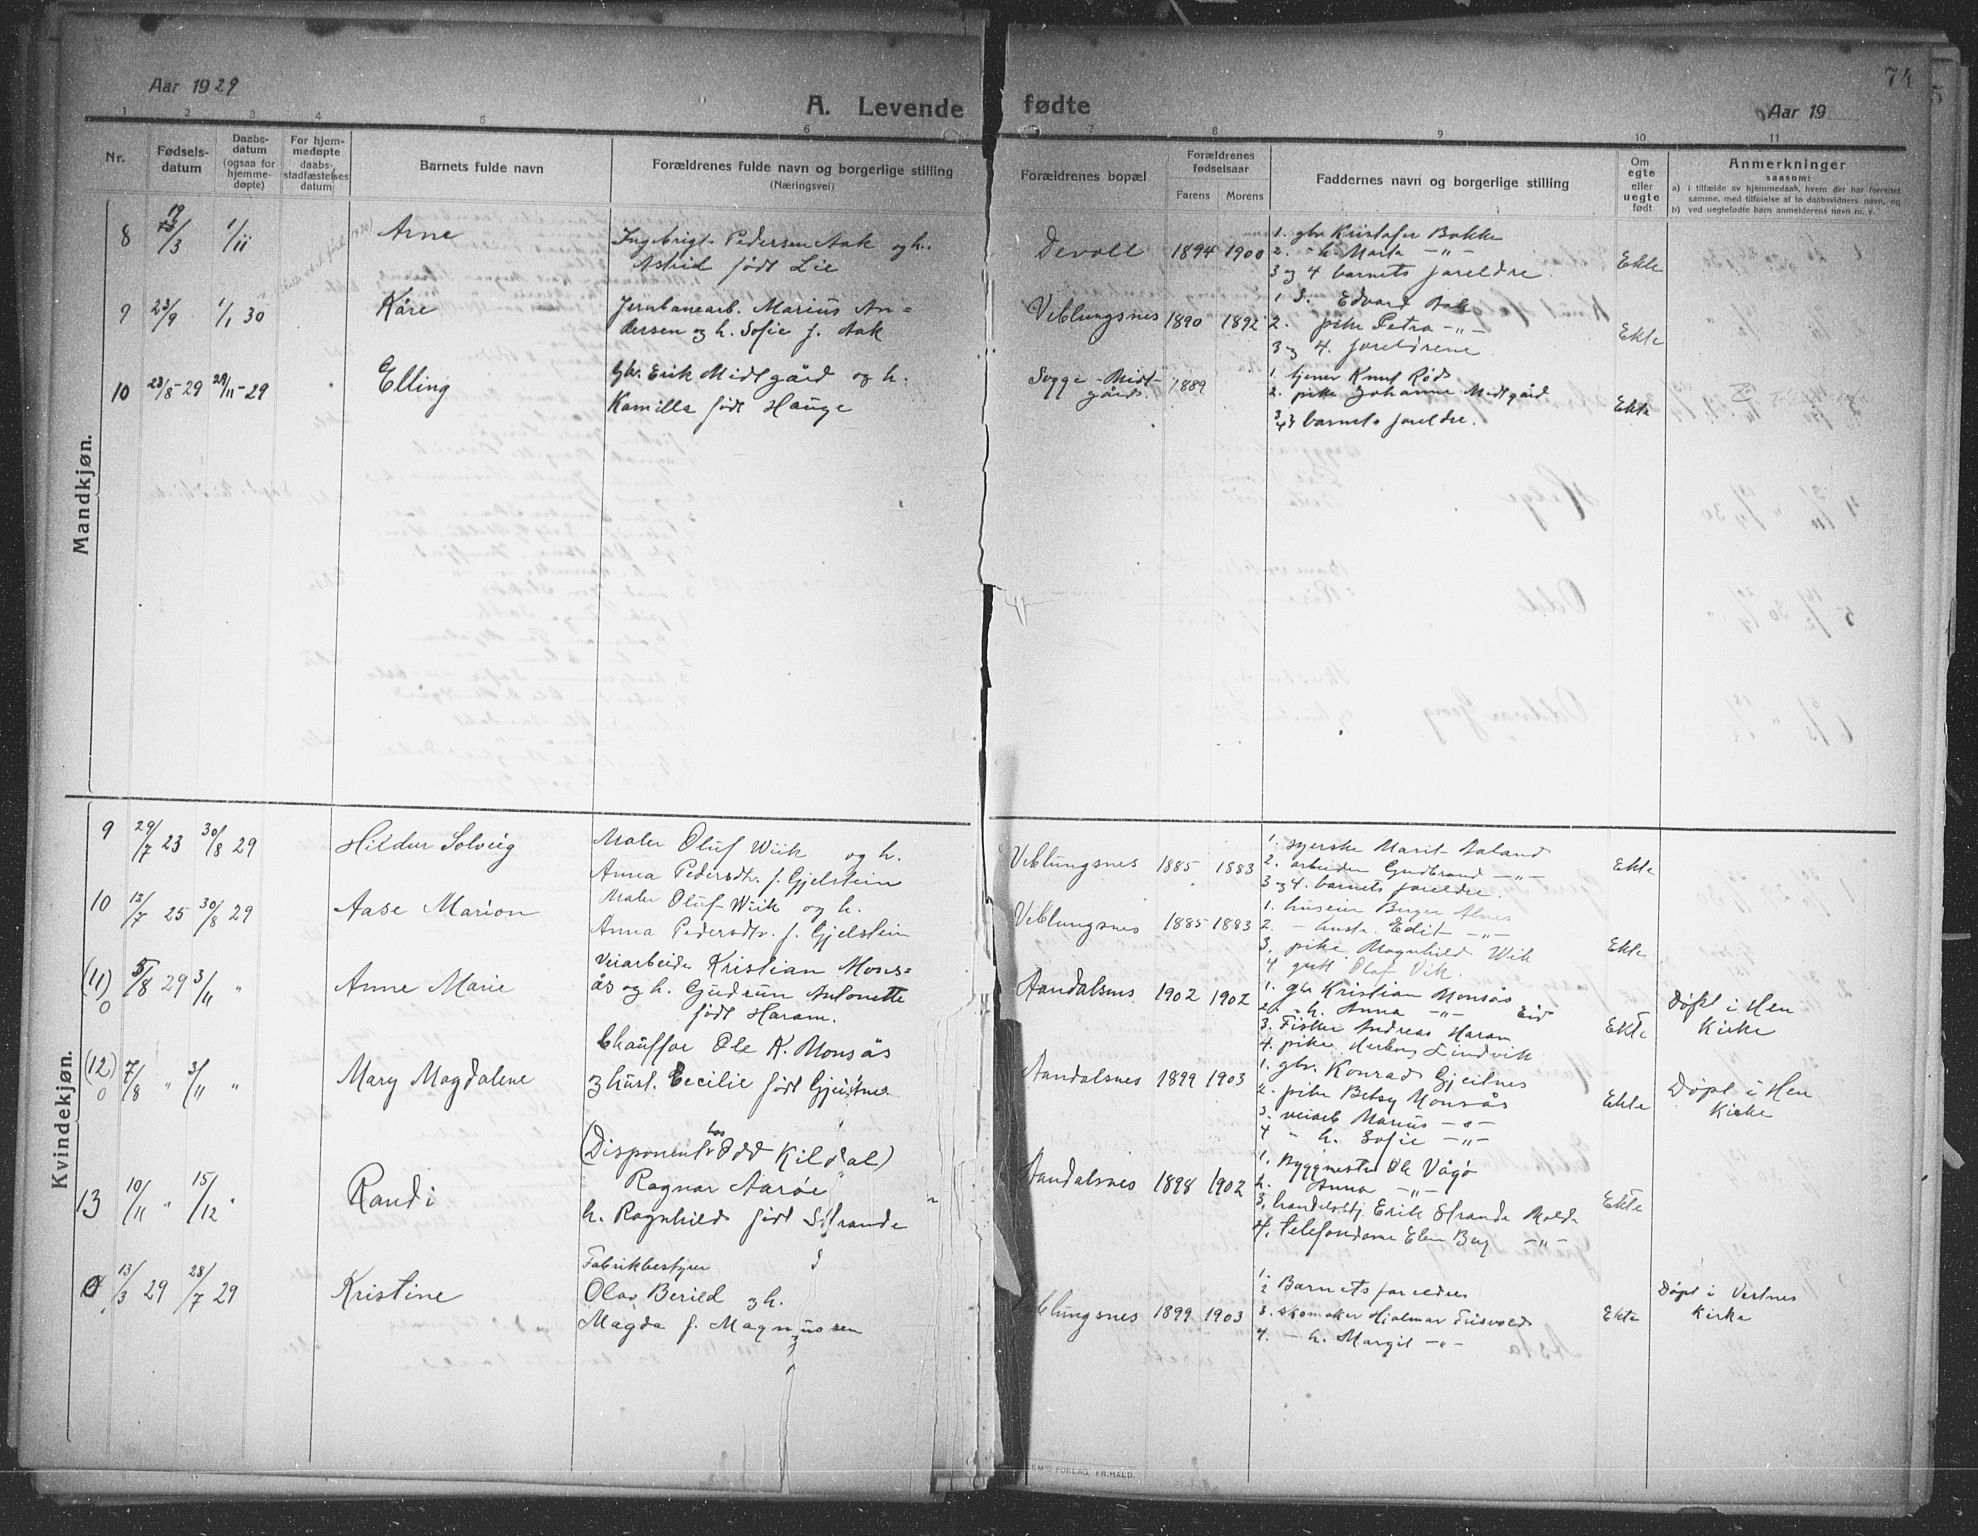 Aar 1929
A. Levende fødte
Aar 19
74
1 2 3 4 5 6 7 8 9 10 11
Nr.
Fødsels-
datum
Daabs-
datum
(ogsaa for
hjemme-
døpte)
For hjem-
medøpte
daabs-
stadfæstelses
datum
Barnets fulde navn
Forældrenes fulde navn og borgerlige stilling
(Næringsvei)
Forældrenes bopæl
Forældrenes
fødselsaar
Farens Morens
Faddernes navn og borgerlige stilling
Om
egte
eller
uegte
født
Anmerkninger
saasom:
a) i tilfælde av hjemmedaab, hvem der har forrettet
samme, med tilføielse af to daabsvidners navn, og
b) ved uegtefødte børn anmelderens navn m. v.
Mandkjøn.
8 19/3 1/11 Arne
Ingebrigt Pedersen Aak og h.
Astrid født Lie
Devoll 1894 1900
1. gbr Kristofer Bakke
2. - h. Marta -"-
3 og 4 barnets foreldre
Ekte
9 23/9 1/1 30 Kåre
Jernbanearb. Marius An=
dersen og h. Sofie f. Aak
Veblungsnes 1890 1892
1 Edvard Aak
2. pike Petra -"-
3 og 4. foreldrene
Ekte
10 28/8-29 29/11-29 Elling
Gbr. Erik Midtgård og h.
Kamilla født Hauge
Sogge-Midt-
gård. 1889
1. tjener Knut Rød
2. pike Johanne Midtgård
3/4 barnets foreldre.
Ekte
Kvindekjøn.
9 29/7 23 30/8 29 Hildur Solveig
Maler Oluf Wiik og h.
Anna Pedersdtr. f. Gjelstein
Veblungsnes 1885 1883
1. syerske Marit Aaland
2. arbeider Gudbrand -"-
3 og 4. barnets foreldre.
Ekte
10 12/7 25 30/8 29 Aase Marion
Maler Oluf Wiik og h.
Anna Pedersdtr. f. Gjelstein
Veblungsnes 1885 1883
1. huseier Birger Alnes
2. - hustr. Edit -"-
3. pike Magnhild Wik
4. gutt Olaf Vik.
Ekte
(11) 0 5/8 29 3/11 " Anne Marie
Veiarbeider Kristian Mons=
ås og h. Gudrun Antonette
født Haram.
Aandalsnes 1902 1902
1. gbr Kristian Monsås
2. - h. Anna -"- Eid
3. Fisker Andreas Haram
4. pike Herborg Lindvik
Ekte
Døpt i Hen
Kirke
(12) 0 7/8 " 3/11 " Mary Magdalene
Chauffør Ole K. Monsås
og hust. Cecilie født Gjeitnes
Aandalsnes 1899 1903
1. gbr. Konrad Gjeitnes
2. pike Betsy Monsås
3. veiarb Marius -"-
4 " h. Sofie -"-
Ekte
Døpt i Hen
Kirke
13 10/11 " 15/12 " Randi
(Disponent hos Odd Kildal)
Ragnar Aarøe
h. Ragnhild født Strande
Aandalsnes 1898 1902
1. Byggmester Ole Vågø
2. Anna -"-
3. handelsbstj Erik Strande Molde
4. telefondame Elen Berg -"-
Ekte
0 13/3 29 28/7 29 Kristine
Fabrikbestyrer
Olav Berild og h.
Magda f. Magnussen
Veblungsnes 1899 1903
1. 2 Barnets foreldre
3. skomaker Hjalmar Frisvold
4. - h. Margit -"-
Ekte
Døpt i Vestnes
Kirke
FORLAG. FR. HALD.